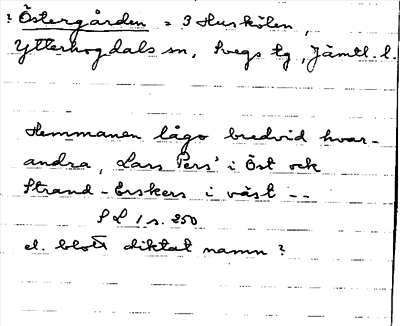 ? Östergården = 3 Huskölen,
Ytterhogdals sn, Svegs tg, Jämtl. l.
Hemmanen lågo bredvid hvar-
andra, Lars Pers' i Öst och
Strand-Erskers i väst --
S L 1 s. 250
el. blott diktat namn?